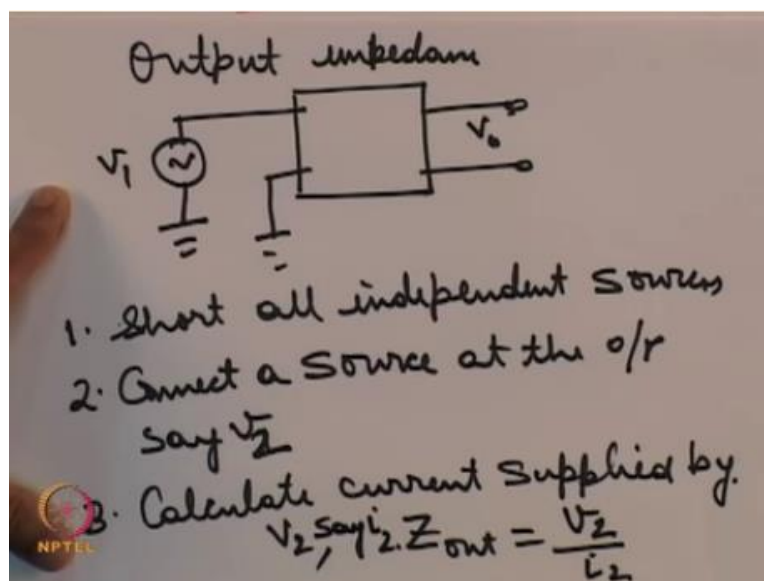 Output impedance
V1
Vo
1. Short all independent sources
2. Connect a source at the o/p
say V2
3. Calculate current supplied by.
V2, say i2. Zout = V2/i2
NPTEL